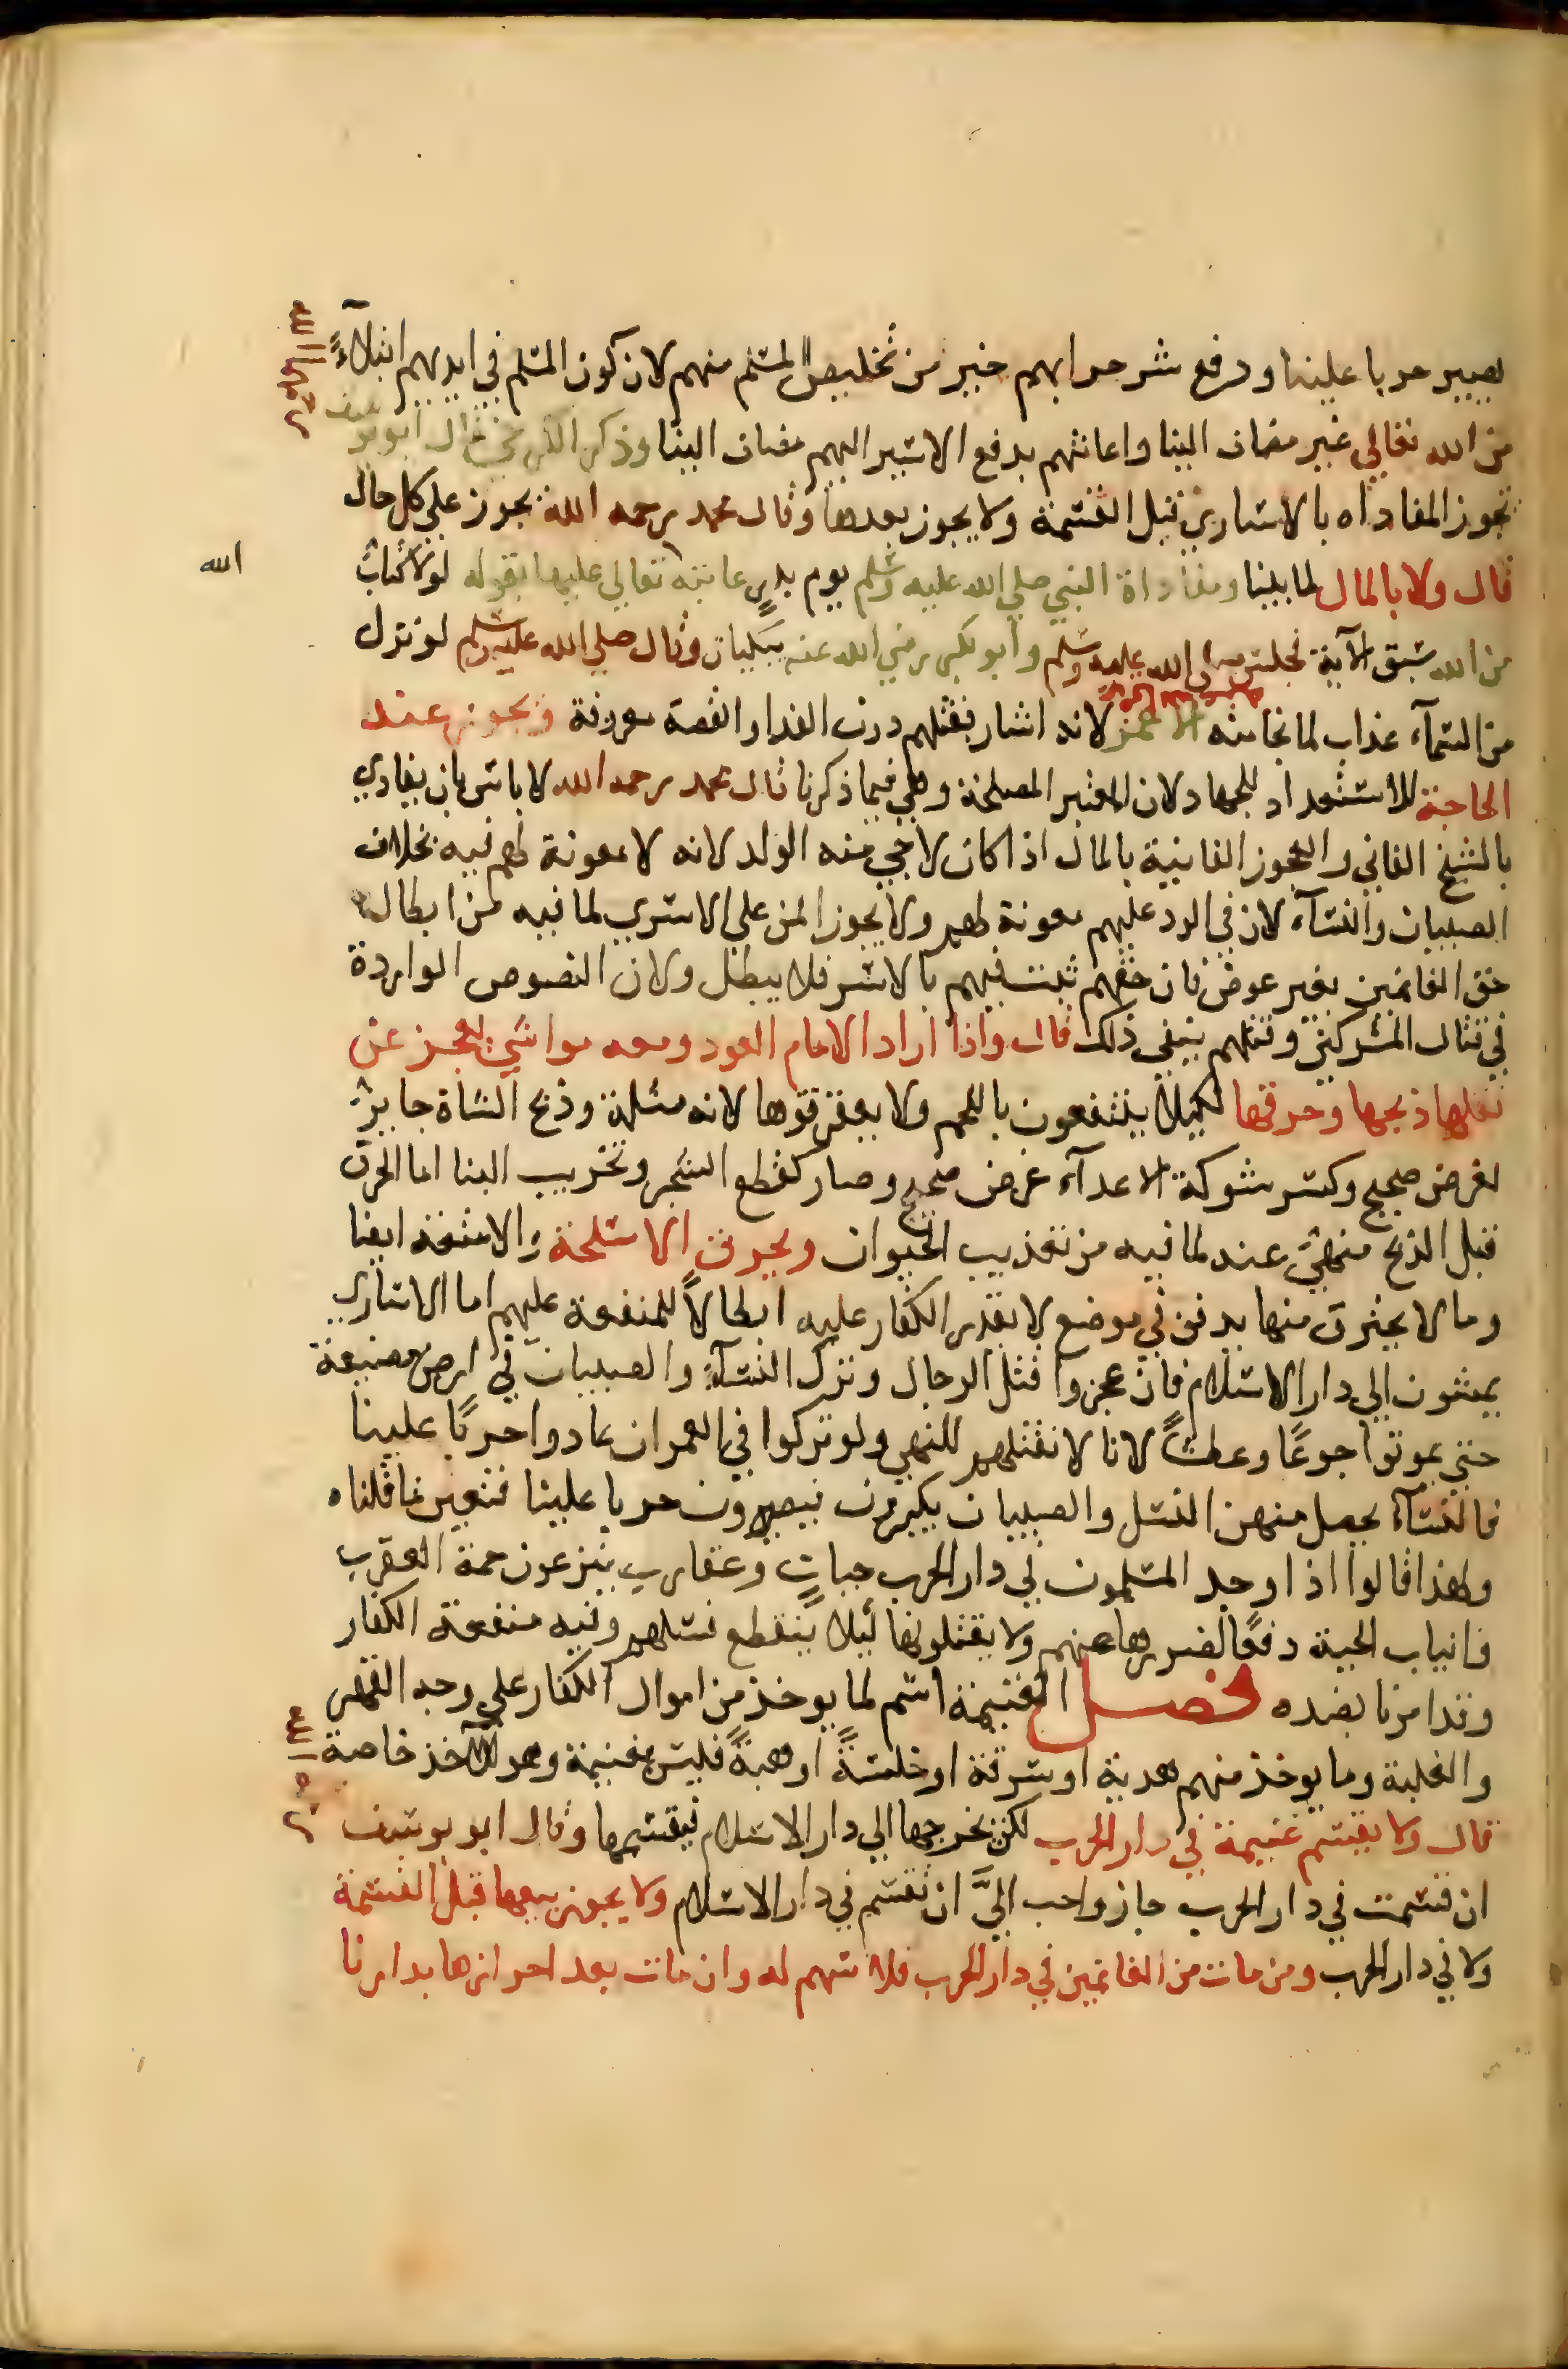 يصير حربا علينا ودفع شر حرابهم خير من تخليص المسلم منهم لان كون المسلم في ايديهم ابتلاءً
من الله تعالي غير مضاف الينا واعانتهم بدفع الاسير اليهم مضاف الينا وذكر الكرخي قال ابو يوسف
تجوز المفاداه بالاسارى قبل القسمة ولا يجوز بعدها وقال محمد رحمه الله يجوز علي كل حال
قال ولا بالمال لما بينا ومفاداة النبي صلي الله عليه وسلم يوم بدرٍ عاتبه تعالي عليها بقوله لولا كتابٌ
الله
من الله سبق الآية فجلس صلى الله عليه وسلم وأبو بكر رضي الله عنه يبكيان وقال صلي الله عليه وسلم لو نزل
من السمآء عذاب لما نجا منه الا عمر لانه اشار بقتلهم دون الفدا والقصة معروفة ويجوز عند
الحاجة للاستعداد للجهاد لان المعتبر المصلحة وهي فيما ذكرنا قال محمد رحمه الله لا باس بان يفادي
بالشيخ الفاني والعجوز الفانية بالمال اذا كان لا يرجي منه الولد لانه لا معونة لهم فيه بخلاف
الصبيان والنسآء لان في الرد عليهم معونة لهم ولا يجوز المن علي الاسري لما فيه من ابطال
حق الغانمين بغير عوض فان حقهم ثبت فيهم بالاسر فلا يبطل ولان النصوص الواردة
في قتال المشركين وقتلهم ينفي ذلك قال واذا اراد الامام العود ومعه مواشي يعجز عن
نقلها ذبحها وحرقها لكيلا ينتفعون باللحم ولا يعقرقوها لانه مثلة وذبح الشاة جايزٌ
لغرض صحيح وكسر شوكة الاعدآء غرض صحيح وصار كقطع الشجر وتخريب البنا اما الحرق
قبل الذبح منهيّ عنه لما فيه من تعذيب الحيوان ويحرق الاسلحة والامتعة ايضا
وما لا يحترق منها يدفن في موضع لا يقدر الكفار عليه ابطالاً للمنفعة عليهم اما الاساري
يمشون الي دار الاسلام فان عجزوا قتل الرجال وترك النسآء والصبيان في ارض مضيعة
حتي يموتوا جوعًا وعطشًا لانا لا نقتلهم للنهي ولو تركوا في العمران عادوا حربًا علينا
فالنسآء يحصل منهن النسل والصبيان يكبرون فيصيرون حربا علينا فتعين ما قلناه
ولهذا قالوا اذا وجد المسلمون في دار الحرب حياتٍ وعقارب ينزعون حمة العقرب
وانياب الحية دفعًا لضررها عنهم ولا يقتلونها ليلا ينقطع نسلهم وفيه منفعة الكفار
وقد امرنا بضده فصل الغنيمة اسم لما يوخذ من اموال الكفار علي وجه القهر
والغلبة وما يوخذ منهم هدية او سرقة او خلسةً او هبةً فليس بغنيمة وهو للآخذ خاصة
قال ولا يقسم غنيمة في دار الحرب لكن يخرجها الي دار الاسلام فيقسمها وقال ابو يوسف
ان قسمت في دار الحرب جاز واحب اليَّ ان تقسم في دار الاسلام ولا يجوز بيعها قبل القسمة
ولا في دار الحرب ومن مات من الغانمين في دار الحرب فلا سهم له وان مات بعد احرازها بدارنا